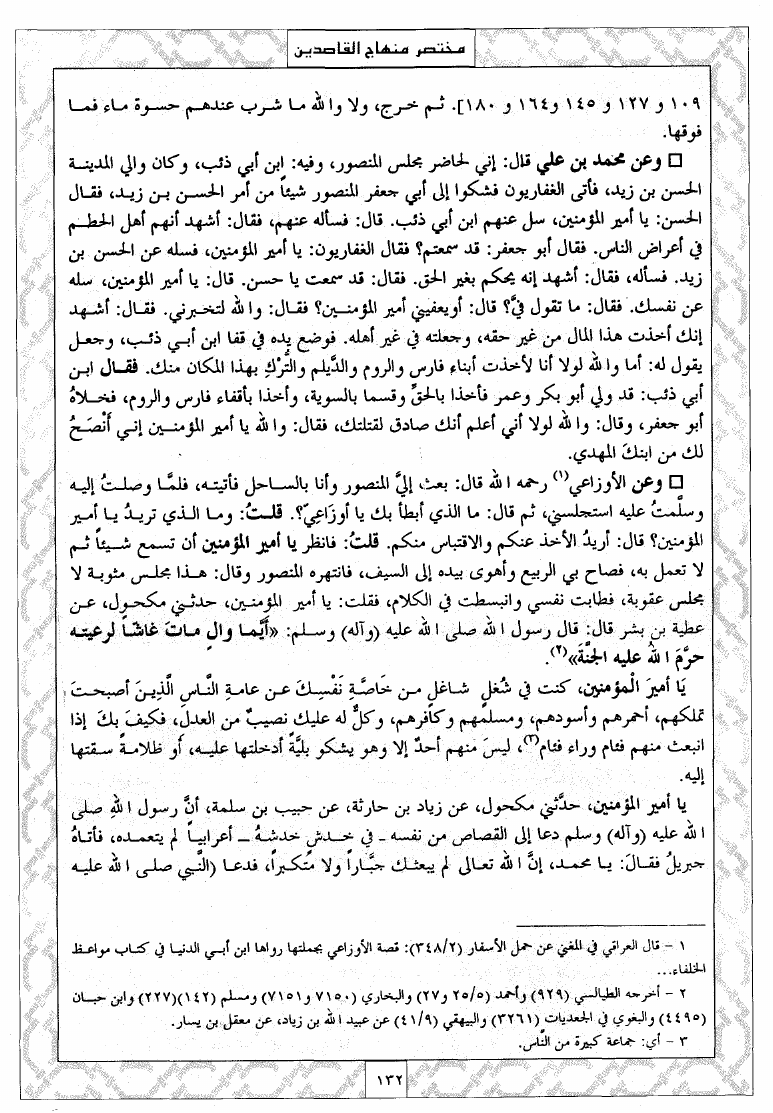 مختصر منهاج القاصدين
١٠٩ و ١٢٧ و ١٤٥ و١٦٤ و ١٨٠]. ثم خرج، ولا والله ما شرب عندهم حسوة ماء فما
فوقها.
□ وعن محمد بن علي قال: إني لحاضر بمجلس المنصور، وفيه: ابن أبي ذئب، وكان والي المدينة
الحسن بن زيد، فأتى الغفاريون فشكوا إلى أبي جعفر المنصور شيئاً من أمر الحسن بن زيد، فقال
الحسن: يا أمير المؤمنين، سل عنهم ابن أبي ذئب. قال: فسأله عنهم، فقال: أشهد أنهم أهل الحطم
في أعراض الناس. فقال أبو جعفر: قد سمعتم؟ فقال الغفاريون: يا أمير المؤمنين، فسله عن الحسن بن
زيد. فسأله، فقال: أشهد إنه يحكم بغير الحق. فقال: قد سمعت يا حسن. قال: يا أمير المؤمنين، سله
عن نفسك. فقال: ما تقول فيَّ؟ قال: أويعفيني أمير المؤمنين؟ فقال: والله لتخبرني. فقال: أشهد
إنك أخذت هذا المال من غير حقه، وجعلته في غير أهله. فوضع يده في قفا ابن أبي ذئب، وجعل
يقول له: أما والله لولا أنا لأخذت أبناء فارس والروم والدَّيلم والتُّرْكِ بهذا المكان منك. فقال ابن
أبي ذئب: قد ولي أبو بكر وعمر فأخذا بالحقِّ وقسما بالسوية، وأخذا بأقفاء فارس والروم، فخلاهُ
أبو جعفر، وقال: والله لولا أني أعلم أنك صادق لقتلتك، فقال: والله يا أمير المؤمنين إني أَنْصَحُ
لك من ابنكَ المهدي.
□ وعن الأوزاعي(١) رحمه الله قال: بعث إليَّ المنصور وأنا بالساحل فأتيته، فلمَّا وصلتُ إليه
وسلَّمتُ عليه استجلسني، ثم قال: ما الذي أبطأ بك يا أوزَاعِيّ؟. قلتُ: وما الذي تريدُ يا أمير
المؤمنين؟ قال: أريدُ الأخذ عنكم والاقتباس منكم. قلتُ: فانظر يا أمير المؤمنين أن تسمع شيئاً ثم
لا تعمل به، فصاح بي الربيع وأهوى بيده إلى السيف، فانتهره المنصور وقال: هذا مجلس مثوبة لا
مجلس عقوبة، فطابت نفسي وانبسطت في الكلام، فقلت: يا أمير المؤمنين، حدثني مكحول، عن
عطية بن بشر قال: قال رسول الله صلى الله عليه (وآله) وسلم: «أيَّما والٍ ماتَ غاشّاً لرعيته
حرَّمَ الله عليه الجنَّةَ»(٢).
يَا أميرَ الْمؤمنين، كنت في شُغلٍ شاغلٍ من خَاصَّةِ نَفْسِكَ عن عامةِ النَّاسِ الَّذينَ أصبحتَ
تملكهم، أحمرهم وأسودهم، ومسلمهم وكافرهم، وكلٌّ له عليك نصيبٌ من العدل، فكيفَ بكَ إذا
انبعث منهم فئام وراء فئام(٣)، ليسَ منهم أحدٌ إلا وهو يشكو بليَّةً أدخلتها عليه، أو ظلامةً سقتها
إليه.
يا أمير المؤمنين، حدَّثني مكحول، عن زياد بن حارثة، عن حبيب بن سلمة، أنَّ رسول اللهِ صلى
الله عليه (وآله) وسلم دعا إلى القصاص من نفسه ـ في خدش خدشهُ ـ أعرابياً لم يتعمده، فأتاهُ
جبريلُ فقالَ: يا محمد، إنَّ الله تعالى لم يبعثك جبَّاراً ولا متكبراً، فدعا (النَّبي صلى الله عليه
١ - قال العراقي في المغني عن حمل الأسفار (٣٤٨/٢): قصة الأوزاعي بجملتها رواها ابن أبي الدنيا في كتاب مواعظ
الخلفاء...
٢ - أخرجه الطيالسي (٩٢٩) وأحمد (٢٥/٥ و٢٧) والبخاري (٧١٥٠ و٧١٥١) ومسلم (١٤٢)(٢٢٧) وابن حبان
(٤٤٩٥) والبغوي في الجعديات (٣٢٦١) والبيهقي (٤١/٩) عن عبيد الله بن زياد، عن معقل بن يسار.
٣ - أي: جماعة كبيرة من النَّاس.
١٣٢